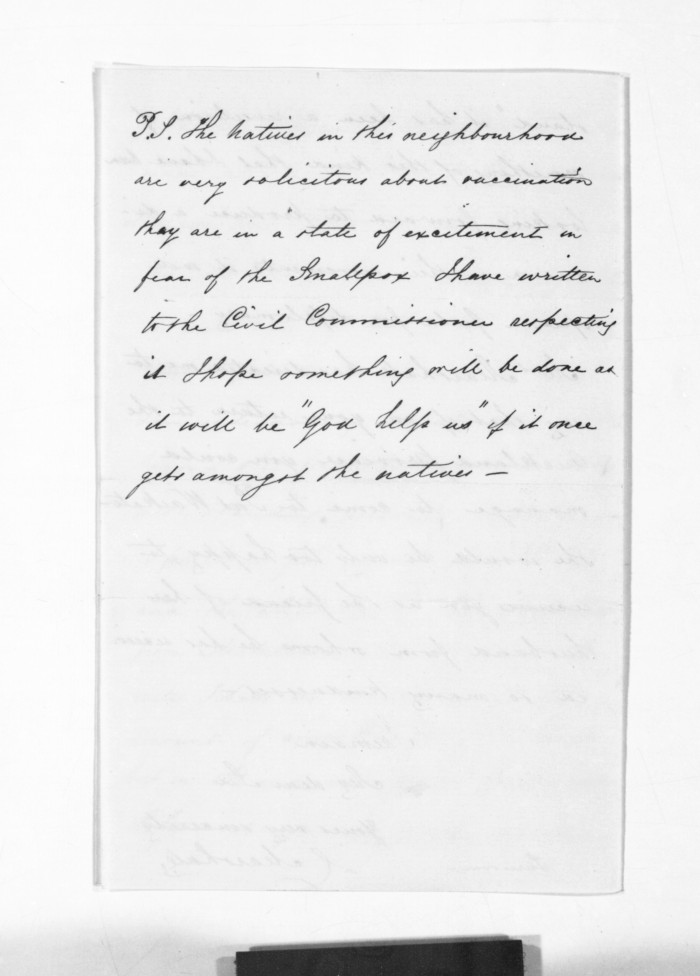 P.S. The Natives in this neighbourhood
are very solicitous about vaccination
thay are in a state of excitement in
fear of the Smallpox I have written
to the Civil Commissioner respecting
it I hope something will be done as
it will be "God help us" if it once
gets amongst the natives —